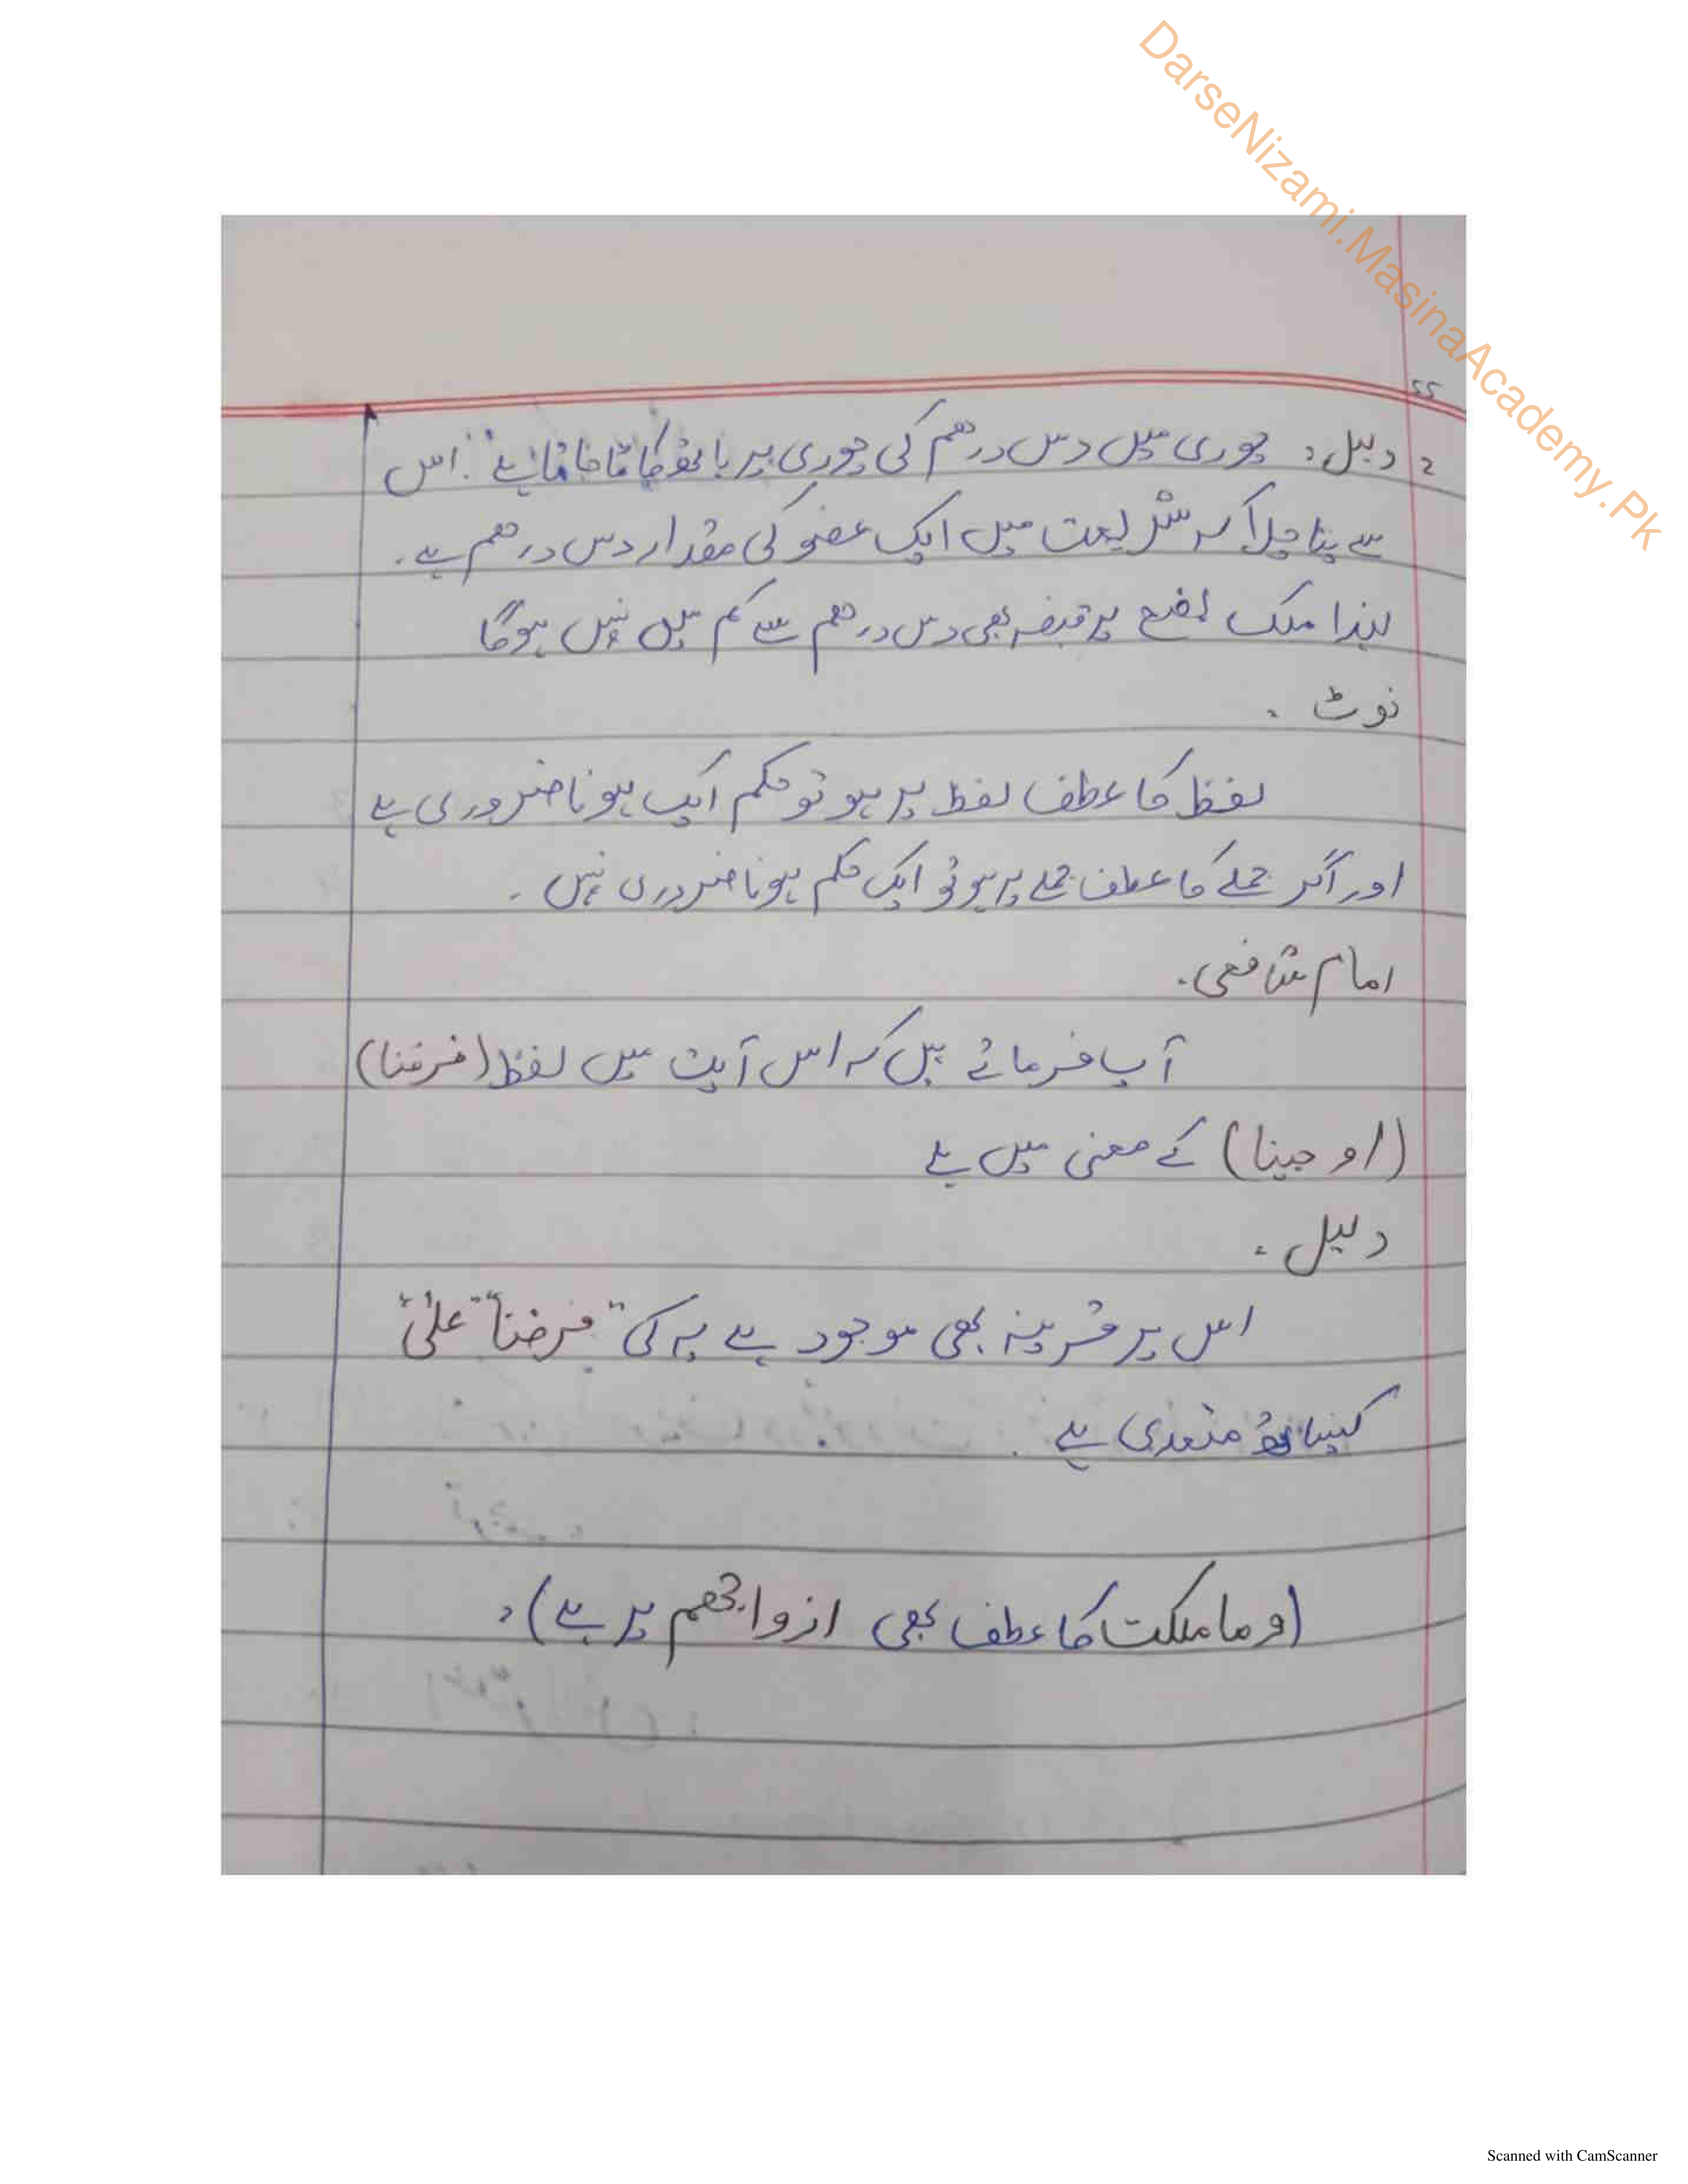 DarseNizami.MasinaAcademy.Pk
55
2 دلیل: چوری میں دس درھم کی چوری پر ہاتھ کاٹا جاتا ہے۔ اس
سے پتا چلا کہ شریعت میں ایک عضو کی مقدار دس درھم ہے۔
لہذا ملک بضع پر قبضہ بھی دس درھم سے کم میں نہیں ہوگا
نوٹ ۔
لفظ کا عطف لفظ پر ہو تو حکم ایک ہونا ضروری ہے
اور اگر جملے کا عطف جملے پر ہو تو ایک حکم ہونا ضروری نہیں ۔
امام شافعی۔
آپ فرماتے ہیں کہ اس آیت میں لفظ (فرضنا)
(اوجبنا) کے معنی میں ہے
دلیل ۔
اس پر قرینہ بھی موجود ہے یہ کی "فرضنا" "علیٰ"
کیساتھ متعدی ہے ۔
(وما ملکت کا عطف بھی ازواجھم پر ہے)۔
Scanned with CamScanner